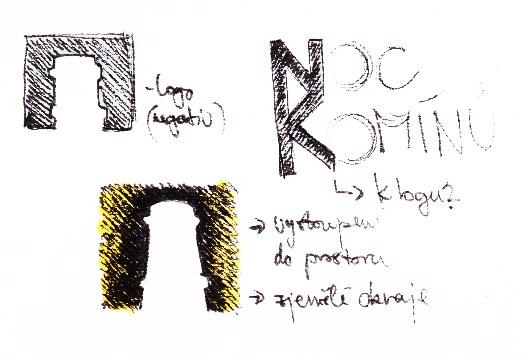 - logo
(negativ)
NOC
KOMÍNŮ
↳ k logu?
→ vystoupení
do prostoru
→ zjemělé okraje